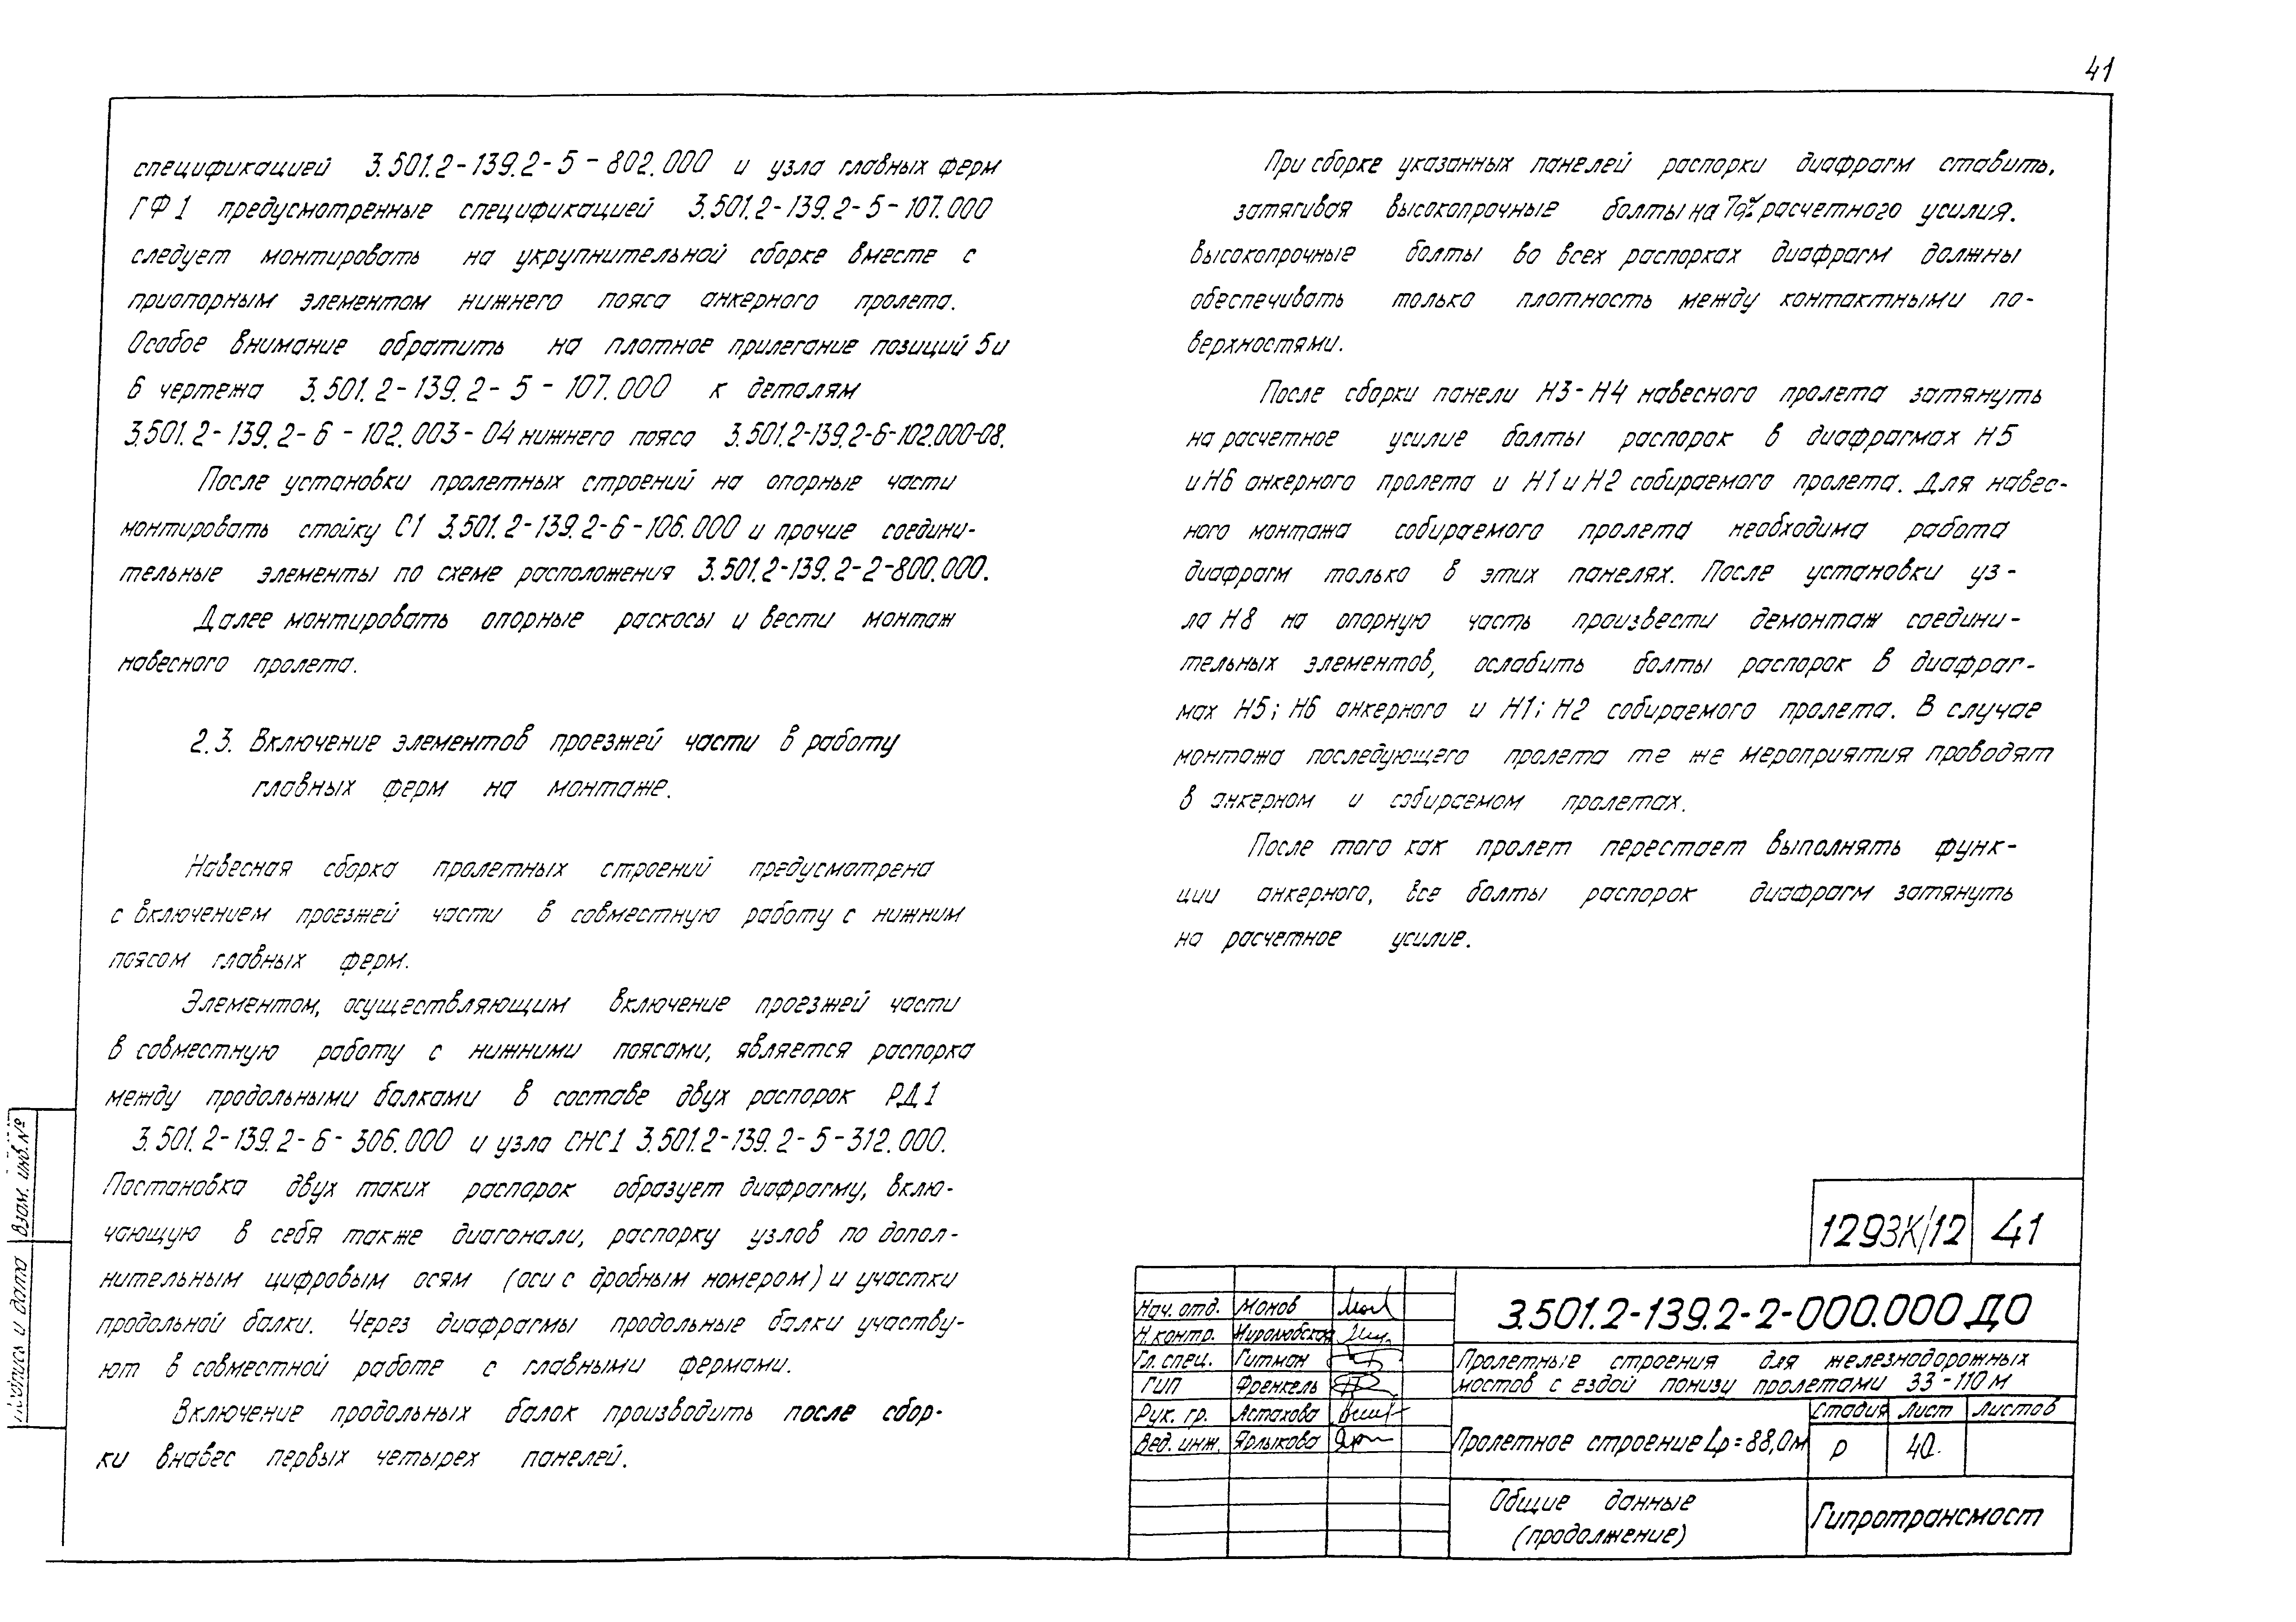 41
спецификацией 3.501.2-139.2-5-802.000 и узла главных ферм
ГФ1 предусмотренные спецификацией 3.501.2-139.2-5-107.000
следует монтировать на укрупнительной сборке вместе с
приопорным элементом нижнего пояса анкерного пролета.
Особое внимание обратить на плотное прилегание позиций 5 и
6 чертежа 3.501.2-139.2-5-107.000 к деталям
3.501.2-139.2-6-102.003-04 нижнего пояса 3.501.2-139.2-6-102.000-08.
После установки пролетных строений на опорные части
монтировать стойку С1 3.501.2-139.2-6-106.000 и прочие соедини-
тельные элементы по схеме расположения 3.501.2-139.2-2-800.000.
Далее монтировать опорные раскосы и вести монтаж
навесного пролета.
2.3. Включение элементов проезжей части в работу
главных ферм на монтаже.
Навесная сборка пролетных строений предусмотрена
с включением проезжей части в совместную работу с нижним
поясом главных ферм.
Элементом, осуществляющим включение проезжей части
в совместную работу с нижними поясами, является распорка
между продольными балками в составе двух распорок РД1
3.501.2-139.2-6-306.000 и узла СНС1 3.501.2-139.2-5-312.000.
Постановка двух таких распорок образует диафрагму, вклю-
чающую в себя также диагонали, распорку узлов по допол-
нительным цифровым осям (оси с дробным номером) и участки
продольной балки. Через диафрагмы продольные балки участву-
ют в совместной работе с главными фермами.
Включение продольных балок производить после сбор-
ки внавес первых четырех панелей.
При сборке указанных панелей распорки диафрагм ставить,
затягивая высокопрочные болты на 70% расчетного усилия.
Высокопрочные болты во всех распорках диафрагм должны
обеспечивать только плотность между контактными по-
верхностями.
После сборки панели Н3-Н4 навесного пролета затянуть
на расчетное усилие болты распорок в диафрагмах Н5
и Н6 анкерного пролета и Н1 и Н2 собираемого пролета. Для навес-
ного монтажа собираемого пролета необходима работа
диафрагм только в этих панелях. После установки уз-
ла Н8 на опорную часть произвести демонтаж соедини-
тельных элементов, ослабить болты распорок в диафраг-
мах Н5; Н6 анкерного и Н1; Н2 собираемого пролета. В случае
монтажа последующего пролета те же мероприятия проводят
в анкерном и собираемом пролетах.
После того как пролет перестает выполнять функ-
ции анкерного, все болты распорок диафрагм затянуть
на расчетное усилие.
Взам. инв.№
Подпись и дата
1293К/12 41
3.501.2-139.2-2-000.000 ДО
Нач. отд. Монов
Н.контр. Миролюбская
Гл. спец. Гитман
ГИП Френкель
Рук. гр. Астахова
Вед. инж. Ярлыкова
Пролетные строения для железнодорожных
мостов с ездой понизу пролетами 33-110 м
Пролетное строение Lр = 88,0м
Стадия Лист Листов
Р 40.
Общие данные
(продолжение)
Гипротрансмост